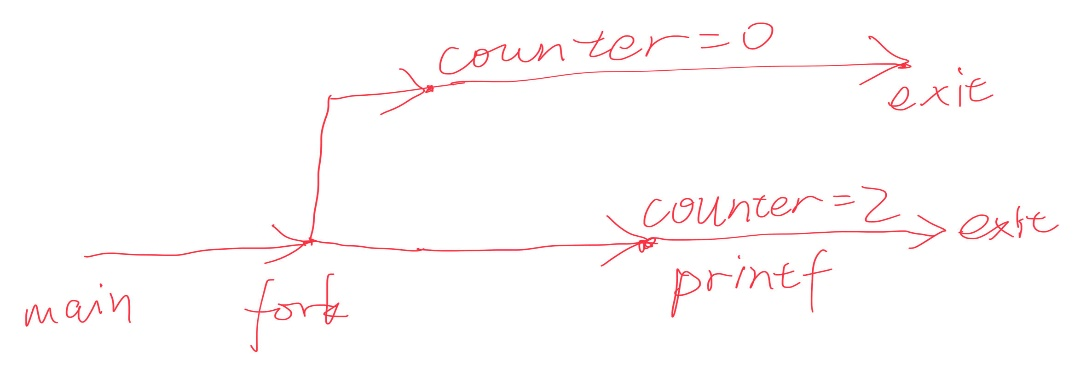 counter=0
exit
counter=2
exit
main
fork
printf